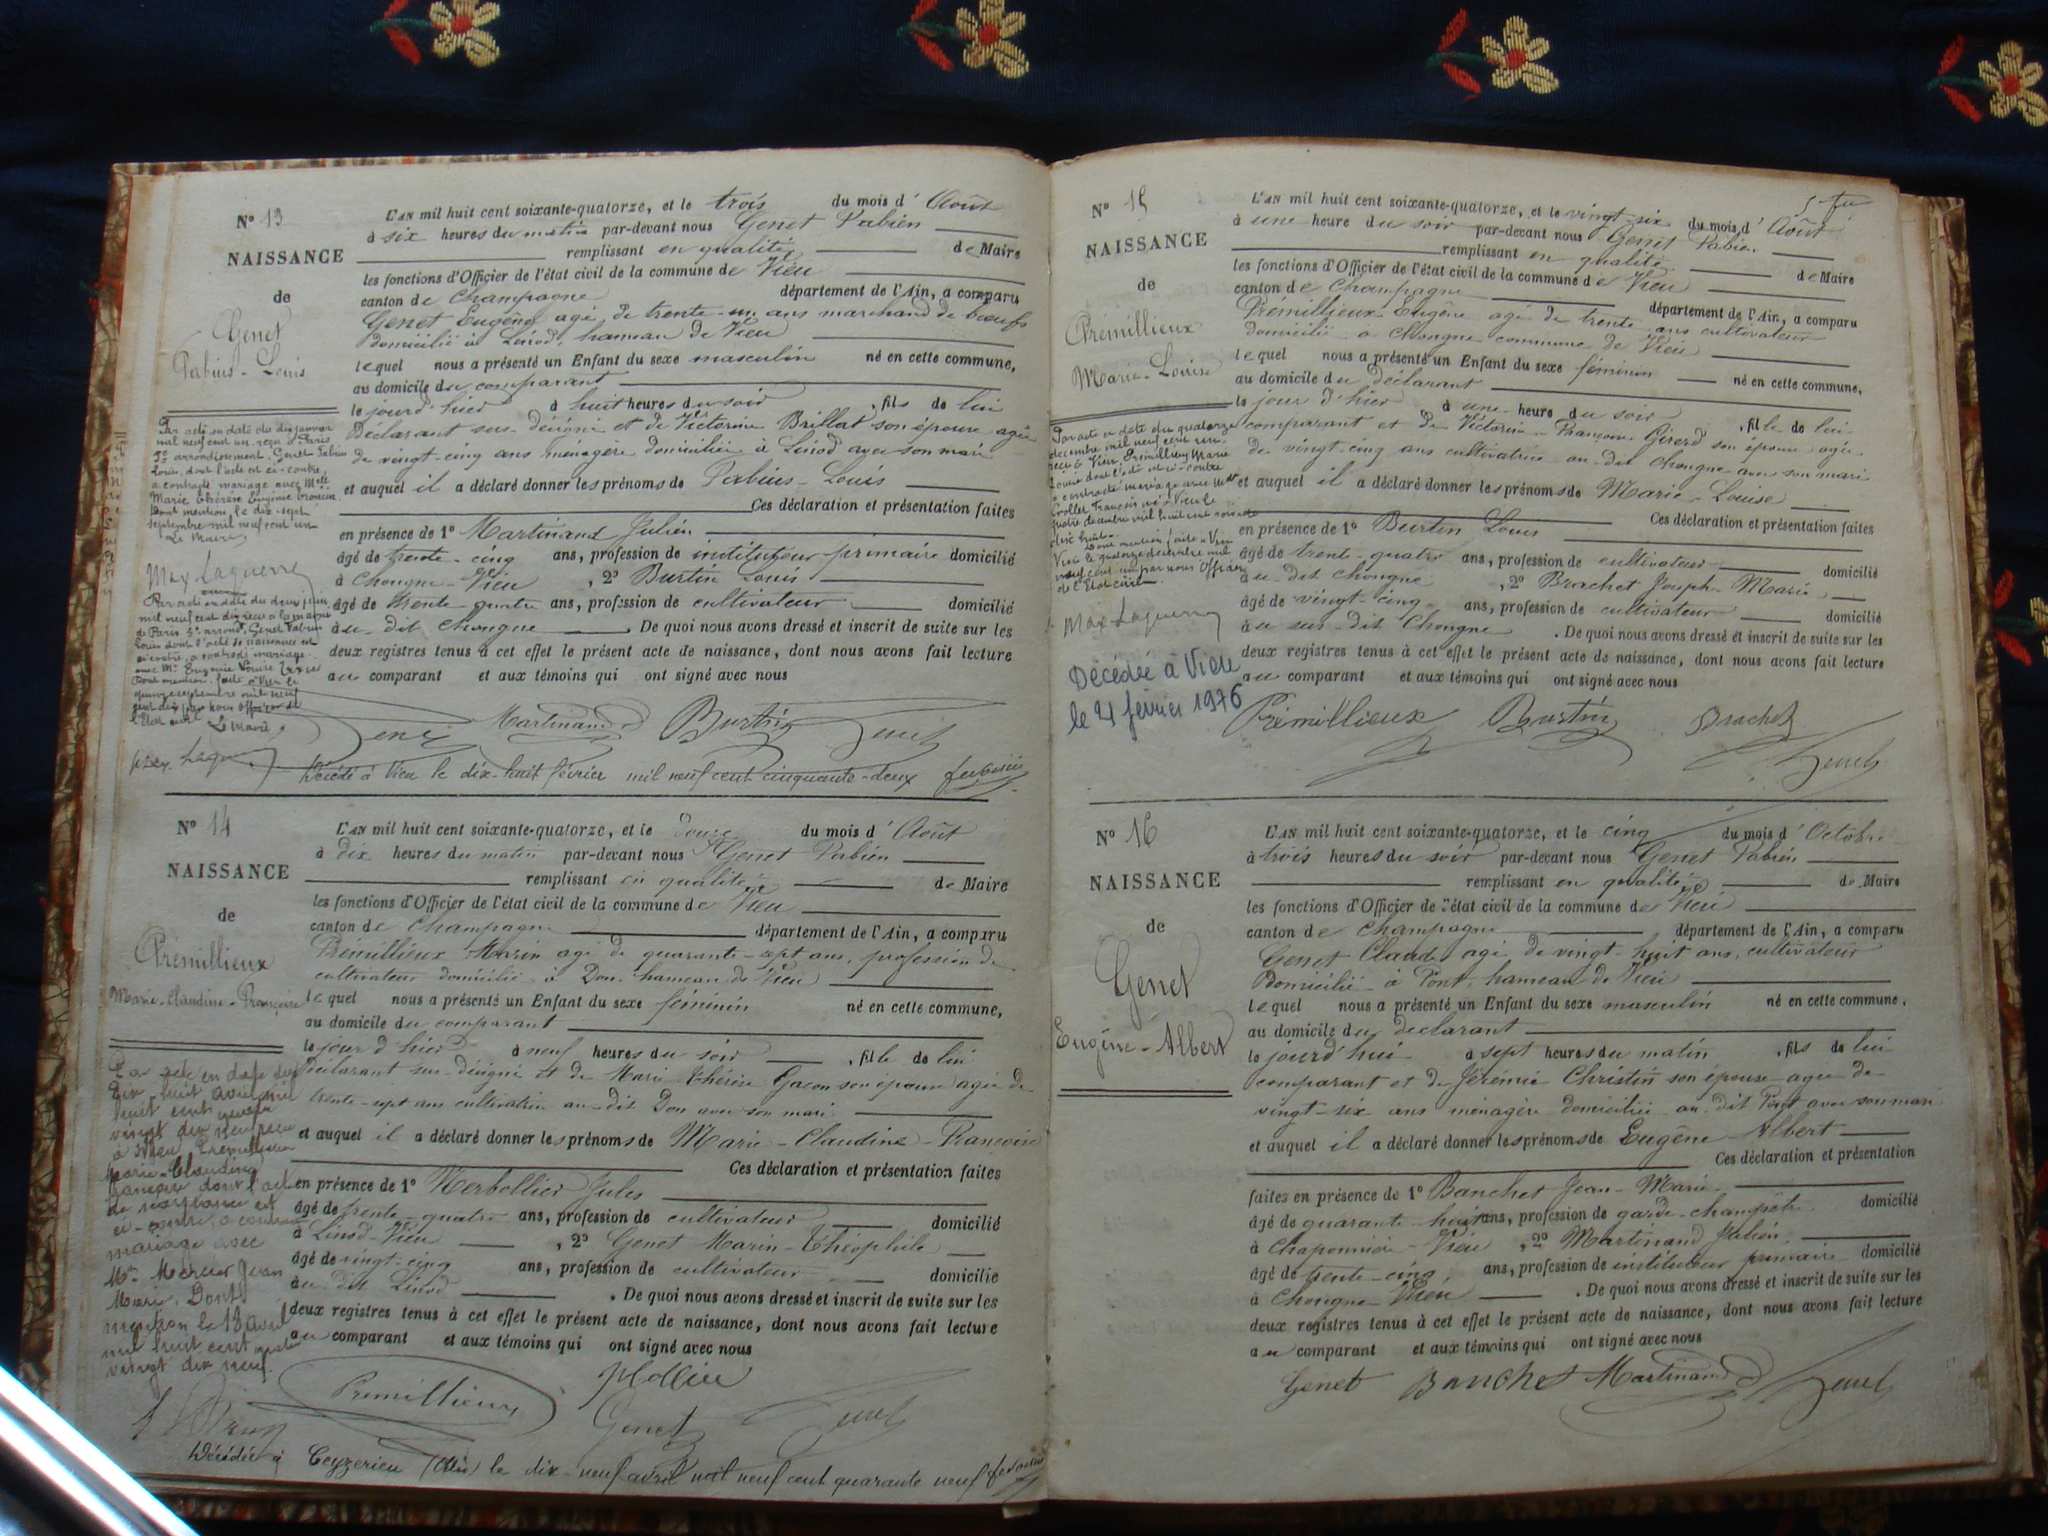 Nº 13
NAISSANCE
de
Genet
Fabius-Louis
L'AN mil huit cent soixante-quatorze, et le trois du mois d'Août
à six heures du matin par-devant nous Genet Fabien
remplissant en qualité de Maire
les fonctions d'Officier de l'état civil de la commune de Vieu
canton de Champagne département de l'Ain, a comparu
Genet Eugène agé de trente-un ans marchand de bœufs
domicilié à Linod, hameau de Vieu
lequel nous a présenté un Enfant du sexe masculin né en cette commune,
au domicile du comparant
le jour d'hier à huit heures du soir, fils de lui
déclarant sus-désigné et de Victorine Brillat son épouse agée
de vingt-cinq ans ménagère domiciliée à Linod avec son mari
et auquel il a déclaré donner les prénoms de Fabius-Louis
Ces déclaration et présentation faites
en présence de 1º Martinand Julien
âgé de trente-cinq ans, profession de instituteur primaire domicilié
à Chongne-Vieu, 2º Burtin Louis
âgé de trente-quatre ans, profession de cultivateur domicilié
à u-dit Chongne. De quoi nous avons dressé et inscrit de suite sur les
deux registres tenus à cet effet le présent acte de naissance, dont nous avons fait lecture
au comparant et aux témoins qui ont signé avec nous
Par acte en date du dix janvier
mil neuf cent un reçu à Paris
arrondissement, Genet Fabius
Louis, dont l'acte est ci-contre,
a contracté mariage avec Melle
Marie Thérèse Eugénie
Dont mention, le dix-sept
septembre mil neuf cent un
Le Maire,
Max Laguerre
Par acte en date du deux juin
mil neuf cent dix reçu à la mairie
de Paris 5e arrond. Genet Fabius
Louis dont l'acte de naissance est
ci-contre, a contracté mariage
avec Me Eugénie Louise
Dont mention faite à Vieu le
quinze septembre mil neuf
cent dix par nous Officier de
l'Etat civil
Le Maire,
Genet Martinand Burtin Genet
Max Laguerre
Décédé à Vieu le dix-huit février mil neuf cent cinquante-deux
Nº 14
NAISSANCE
de
Prémillieux
Marie-Claudine-Françoise
L'AN mil huit cent soixante-quatorze, et le douze du mois d'Août
à dix heures du matin par-devant nous Genet Fabien
remplissant en qualité de Maire
les fonctions d'Officier de l'état civil de la commune de Vieu
canton de Champagne département de l'Ain, a comparu
Prémillieux Marin agé de quarante-sept ans, profession de
cultivateur domicilié à Don hameau de Vieu
lequel nous a présenté un Enfant du sexe féminin né en cette commune,
au domicile du comparant
le jour d'hier à neuf heures du soir, fille de lui
déclarant sus-désigné et de Marie-Thérèse Gacon son épouse agée de
trente-sept ans cultivatrice au-dit Don avec son mari
et auquel il a déclaré donner les prénoms de Marie-Claudine-Françoise
Ces déclaration et présentation faites
en présence de 1º Herbollier Jules
âgé de trente-quatre ans, profession de cultivateur domicilié
à Linod-Vieu, 2º Genet Marin-Théophile
âgé de vingt-cinq ans, profession de cultivateur domicilié
à u-dit Linod. De quoi nous avons dressé et inscrit de suite sur les
deux registres tenus à cet effet le présent acte de naissance, dont nous avons fait lecture
au comparant et aux témoins qui ont signé avec nous
Par acte en date du
dix huit avril mil
huit cent quatre
vingt dix neuf reçu
à Vieu, Premillieux
Marie-Claudine
Françoise dont l'acte
de naissance est
ci-contre, a contracté
mariage avec
Mr. Mercier Jean
Marie. Dont
mention le 18 avril
mil huit cent quatre
vingt dix neuf.
Premillieux Genet Genet
Décédée à Ceyzerieu (Ain) le dix-neuf avril mil neuf cent quarante neuf
Nº 15
NAISSANCE
de
Prémillieux
Marie-Louise
L'AN mil huit cent soixante-quatorze, et le vingt-six du mois d'Août
à une heure du soir par-devant nous Genet Fabien
remplissant en qualité de Maire
les fonctions d'Officier de l'état civil de la commune de Vieu
canton de Champagne département de l'Ain, a comparu
Prémillieux Eugène agé de trente ans cultivateur
domicilié à Chongne commune de Vieu
lequel nous a présenté un Enfant du sexe féminin né en cette commune,
au domicile du déclarant
le jour d'hier à une heure du soir, fille de lui
comparant et de Victorine-Françoise Girerd son épouse agée
de vingt-cinq ans cultivatrice au-dit Chongne avec son mari
et auquel il a déclaré donner les prénoms de Marie-Louise
Ces déclaration et présentation faites
en présence de 1º Burtin Louis
âgé de trente-quatre ans, profession de cultivateur domicilié
à u-dit Chongne, 2º Brachet Joseph-Marie
âgé de vingt-cinq ans, profession de cultivateur domicilié
à u sus-dit Chongne. De quoi nous avons dressé et inscrit de suite sur les
deux registres tenus à cet effet le présent acte de naissance, dont nous avons fait lecture
au comparant et aux témoins qui ont signé avec nous
Par acte en date du quatorze
décembre mil neuf cent un
reçu à Vieu, Prémillieux Marie
Louise dont l'acte est ci-contre
a contracté mariage avec Mr
François né à Vieu le
quatre décembre mil huit cent soixante
Dont mention faite à
Vieu le quatorze décembre mil
neuf cent un par nous Officier
de l'Etat civil
Max Laguerre
Décédée à Vieu
le 21 février 1976
Prémillieux Burtin Brachet
Genet
Nº 16
NAISSANCE
de
Genet
Eugène-Albert
L'AN mil huit cent soixante-quatorze, et le cinq du mois d'Octobre
à trois heures du soir par-devant nous Genet Fabien
remplissant en qualité de Maire
les fonctions d'Officier de l'état civil de la commune de Vieu
canton de Champagne département de l'Ain, a comparu
Genet Claude agé de vingt-huit ans, cultivateur
domicilié à Pont, hameau de Vieu
lequel nous a présenté un Enfant du sexe masculin né en cette commune,
au domicile du déclarant
le jourd'hui à sept heures du matin, fils de lui
comparant et de Jérémie Christin son épouse agée de
vingt-six ans ménagère domiciliée au-dit Pont avec son mari
et auquel il a déclaré donner les prénoms de Eugène-Albert
Ces déclaration et présentation
faites en présence de 1º Banchet Jean-Marie
âgé de quarante-huit ans, profession de garde-champêtre domicilié
à Chaponnière-Vieu, 2º Martinand Julien,
âgé de trente-cinq, ans, profession de instituteur primaire domicilié
à Chongne Vieu. De quoi nous avons dressé et inscrit de suite sur les
deux registres tenus à cet effet le présent acte de naissance, dont nous avons fait lecture
au comparant et aux témoins qui ont signé avec nous
Genet Banchet Martinand Genet